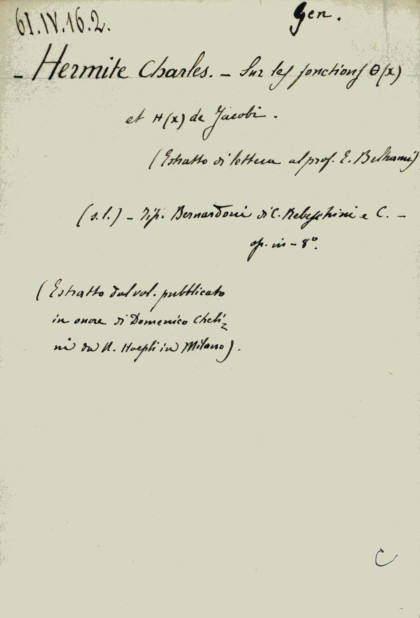 61.IV.16.2.
Gen.
- Hermite Charles. - Sur les fonctions Θ(x)
et H(x) de Jacobi.
(Estratto di lettera al prof. E. Beltrami)
(s.l.) - Tip. Bernardoni di C. Rebeschini e C. -
op. in - 8°.
(Estratto dal vol. pubblicato
in onore di Domenico Cheli-
ni da U. Hoepli in Milano).
C